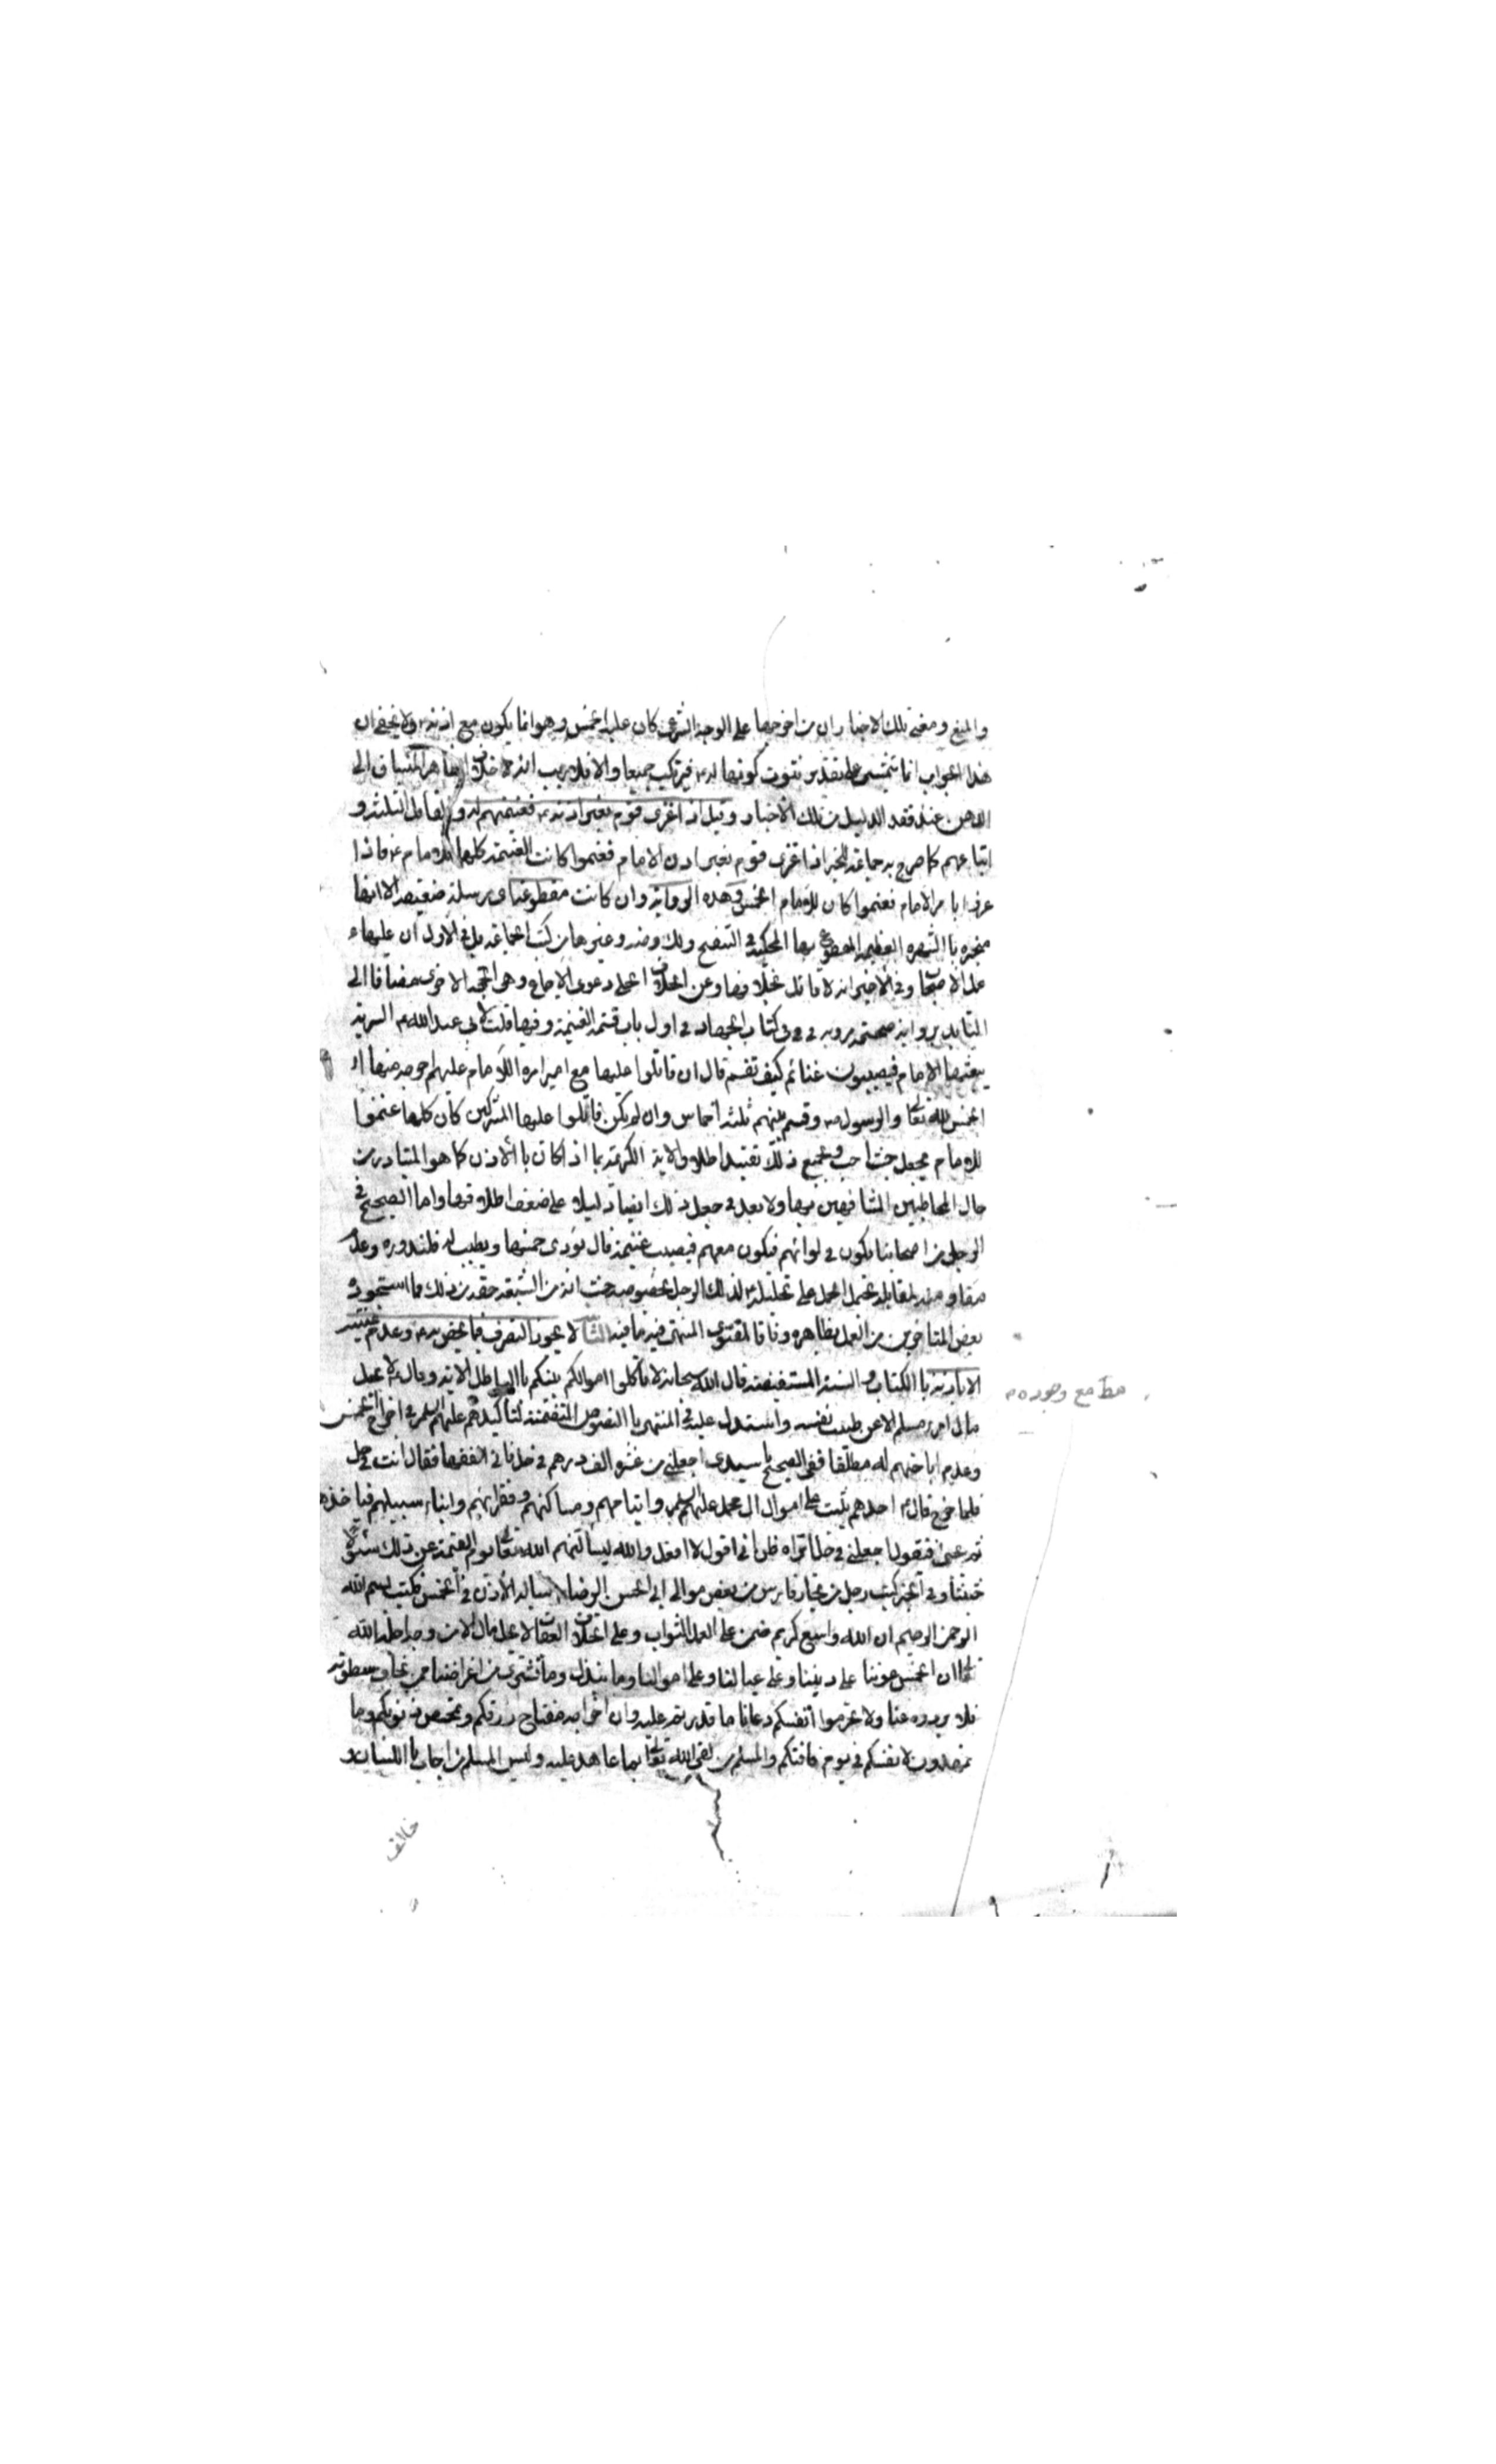 والمنع ومعنى تلك الاخبار ان من اخرجها على الوجه الشرعى كان عليه الخمس وهو انما يكون مع اذنه ولا يخفى ان
هذا الجواب انما يتمشى على تقدير ثبوت كونها له ع فيرتكب جميعا والا فلا ريب انه خلاف ظاهر المنساق الى
الذهن عند فقد الدليل من تلك الاخبار وقيل اذا غزى قوم بغير اذنه ع فغنيمتهم له والقائل الثلثة و
اتباعهم كما صرح به جماعة للخبر اذا غزى قوم بغير اذن الامام فغنموا كانت الغنيمة كلها للامام ع فاذا
غزوا بامر الامام فغنموا كان للامام الخمس وهذه الرواية وان كانت مقطوعة او مرسلة ضعيفة الا انها
منجبرة بالشهرة العظيمة المحكية فى التنقيح ولك وضه وغيرها من كتب الجماعة بل فى الاول ان عليها
عمل الاصحاب وفى الاخير انه لا قائل بخلافها وعن الخلاف الحلى دعوى الاجماع وهى الحجة الاخرى مضافا الى
التايد برواية صحيحة مروية فى فى كتاب الجهاد فى اول باب قسمة الغنيمة وفيها قلت لابى عبد الله ع السرية
يبعثها الامام فيصيبون غنائم كيف تقسم قال ان قاتلوا عليها مع امير امره الامام عليهم اخرج منها
الخمس لله تعالى والرسول ص وقسم بينهم ثلثة اخماس وان لم يكن قاتلوا عليها المشركين كان كلما غنموا
للامام يجعل حيث احب وبجميع ذلك تقييد اطلاق الاية الكريمة بما اذا كان بالاذن كما هو المتبادر من
حال المخاطبين المشافهين بها ولا بعد فى جعل ذلك ايضا دليلا على ضعف اطلاقها واما الصحيح فى
الرجل من اصحابنا يكون فى لوائهم فيكون معهم فيصيب غنيمة قال يؤدى خمسها ويطيب له فلندوره وعدم
مقاومته لمقابله يحتمل الحمل على تحليله ع لذلك الرجل بخصوصه حيث انه من الشيعة حقه من ذلك فما استجوده
بعض المتاخرين من العمل بظاهره وفاقا لمقوى المنتهى فيه ما فيه الثالث لا يجوز التصرف فيما يخص به ع وعدم
الا باذنه بالكتاب والسنة المستفيضة قال الله سبحانه لا تاكلوا اموالكم بينكم بالباطل الاية وقال ع لا يحل
مال امرء مسلم الا عن طيب نفسه واستدل عليه فى المنتهى بالنصوص المتضمنة لتاكيدهم عليهم السلم فى اخراج الخمس
وعدم اباحتهم له مطلقا ففى الصحيح يا سيدى اجعلنى من عشرة الف درهم فى حل فانى انفقتها فقال انت فى حل
فلما خرج قال ع احدهم يثب على اموال ال محمد عليهم السلم وايتامهم ومساكنهم وفقرائهم وابناء سبيلهم فياخذها
ثم يجىء فيقول اجعلنى فى حل اتراه ظن انى اقول لا افعل والله ليسألنهم الله تعالى يوم القيمة عن ذلك سئوالا
حثيثا وفى الخبر كتب رجل من تجار فارس من بعض موالى ابى الحسن الرضا ع يساله الاذن فى الخمس فكتب بسم الله
الرحمن الرحيم ان الله واسع كريم ضمن على العمل الثواب وعلى الخلاف العقاب لا يحل مال الا من وجه احله الله
تعالى ان الخمس عوننا على ديننا وعلى عيالنا وعلى اموالنا وما نبذل وما نشترى من اعراضنا ممن نخاف سطوته
فلا تزووه عنا ولا تحرموا انفسكم دعانا ما قدرتم عليه وان اخراجه مفتاح رزقكم وتمحيص ذنوبكم وما
تمهدون لانفسكم فى يوم فاقتكم والمسلم من يفى الله تعالى بما عاهد عليه وليس المسلم من اجاب باللسان و
مط مع وجوده ع
خالف